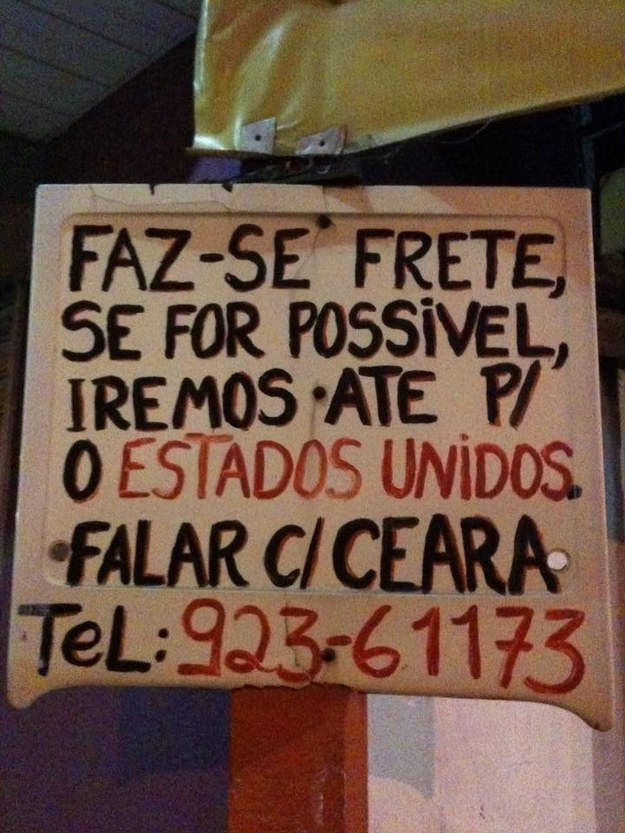 FAZ-SE FRETE,
SE FOR POSSiVEL,
IREMOS ATE P/
O ESTADOS UNiDOS.
FALAR C/ CEARA
TeL: 923-61173